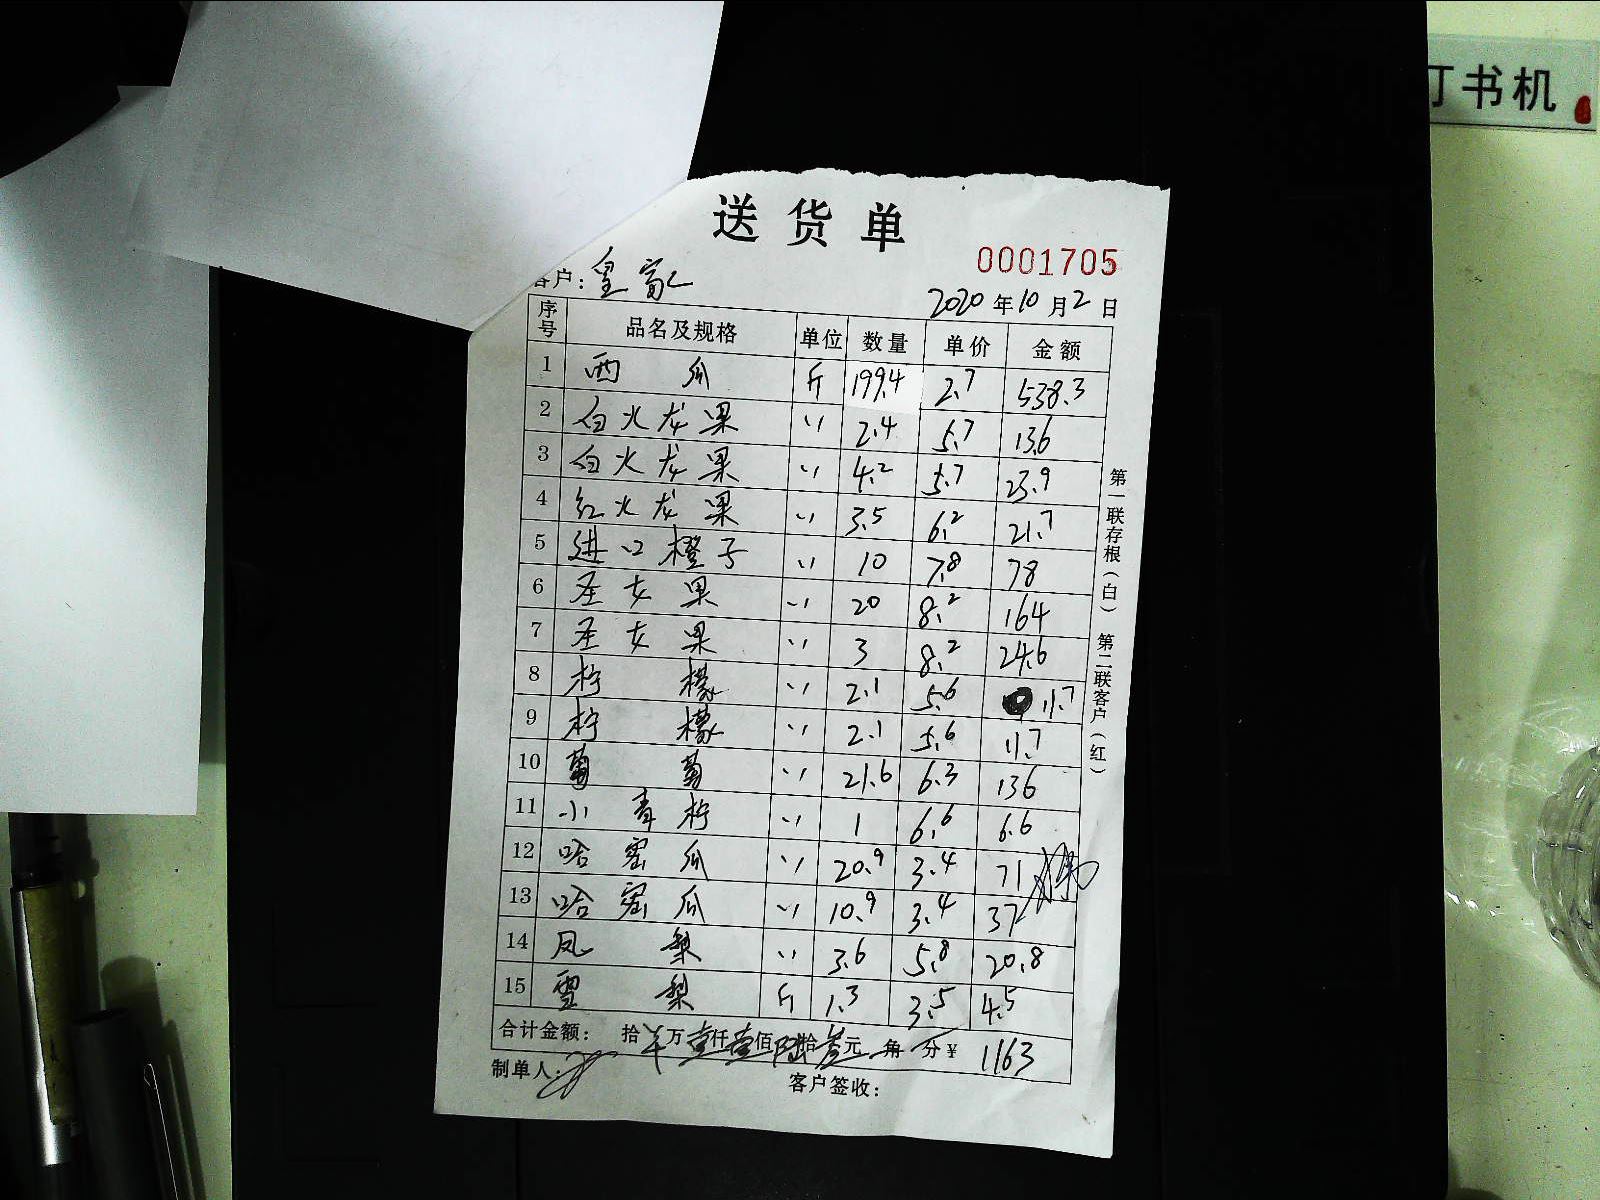 订书机
送货单
0001705
客户：皇家
2020年10月2日
序号 品名及规格 单位 数量 单价 金额
1 西瓜 斤 199.4 2.7 538.3
2 白火龙果 〃 2.4 5.7 13.6
3 白火龙果 〃 4.2 5.7 23.9
4 红火龙果 〃 3.5 6.2 21.7
5 进口橙子 〃 10 7.8 78
6 圣女果 〃 20 8.2 164
7 圣女果 〃 3 8.2 24.6
8 柠檬 〃 2.1 5.6 11.7
9 柠檬 〃 2.1 5.6 11.7
10 葡萄 〃 21.6 6.3 136
11 小青柠 〃 1 6.6 6.6
12 哈密瓜 〃 20.9 3.4 71
13 哈密瓜 〃 10.9 3.4 37
14 凤梨 〃 3.6 5.8 20.8
15 雪梨 斤 1.3 3.5 4.5
合计金额： 拾 万壹仟壹佰陆拾叁元 角 分 ¥ 1163
制单人： 客户签收：
第一联存根（白） 第二联客户（红）